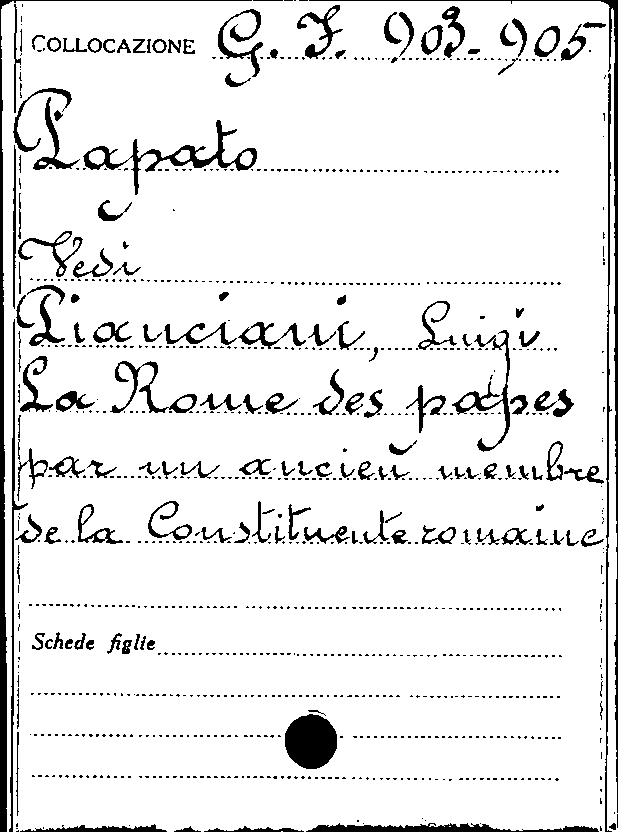 COLLOCAZIONE G. F. 903-905
Papato
Vedi
Pianciani, Luigi
La Rome des papes
par un ancien membre
de la Constituente romaine
Schede figlie